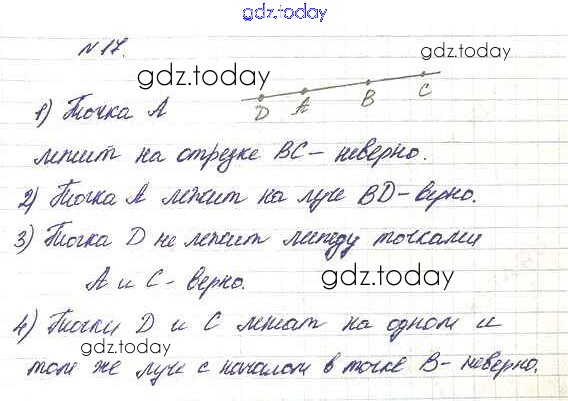 gdz.today
№ 17.
gdz.today
gdz.today
D A B C
1) Точка А
лежит на отрезке ВС – неверно.
2) Точка А лежит на луче BD – верно.
gdz.today
3) Точка D не лежит между точками
А и С – верно.
gdz.today
4) Точки D и С лежат на одном и
gdz.today
том же луче с началом в точке В – неверно.